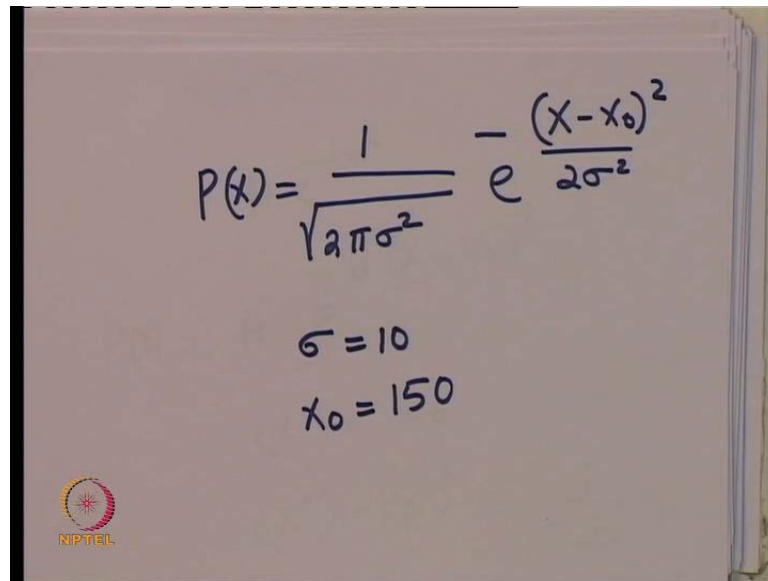 P(x) = 1 / √(2πσ²) e^(-(x-x₀)² / 2σ²)
σ = 10
x₀ = 150
NPTEL